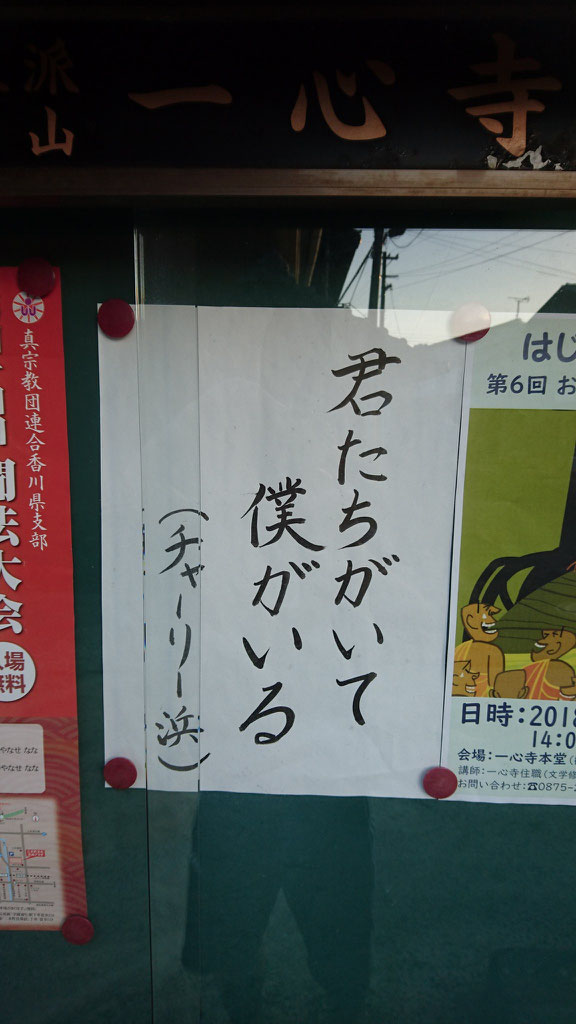 派
山
一心寺
君たちがいて
僕がいる
(チャーリー浜)
真宗教団連合香川県支部
聞法大会
入場
無料
やなせ なな
やなせ なな
はじ
第6回 お
日時:2018
14:0
会場:一心寺本堂
講師:一心寺住職(文学修
お問い合わせ:☎0875-2